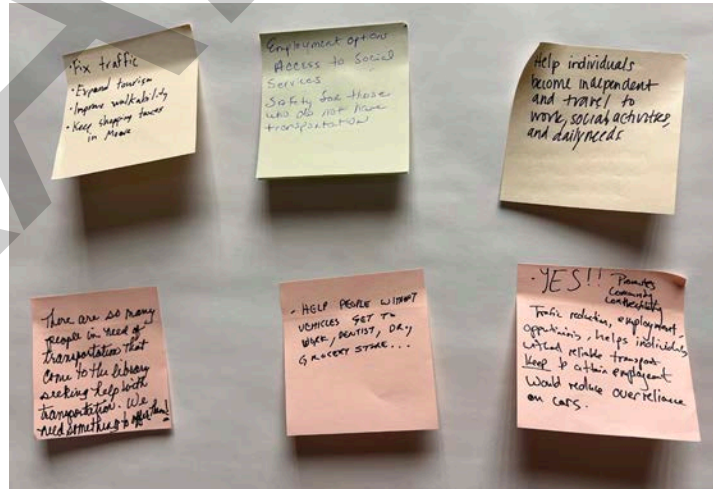 • Fix traffic
• Expand tourism
• Improve walkability
• Keep shopping taxes
in Moore
Employment options
Access to Social
Services
Safety for those
who do not have
transportation
Help individuals
become independent
and travel to
work, social activities,
and daily needs
There are so many
people in need of
transportation that
come to the library
seeking help with
transportation. We
need something to offer them!
• HELP PEOPLE WITHOUT
VEHICLES GET TO
WORK, DENTIST, DR.,
GROCERY STORE...
• YES!! Promotes
Community
connectivity
Traffic reduction, employment
opportunities, helps individuals
without reliable transport
Keep & attain employment
Would reduce over reliance
on cars.